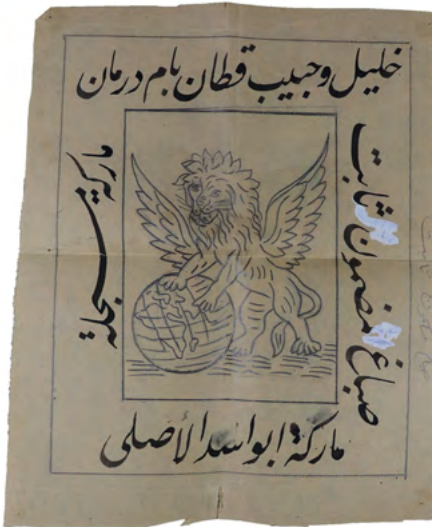 خليل وحبيب قطان بام درمان
صباغ مضمون ثابت
ماركة مسجلة
ماركة ابو اسد الأصلى